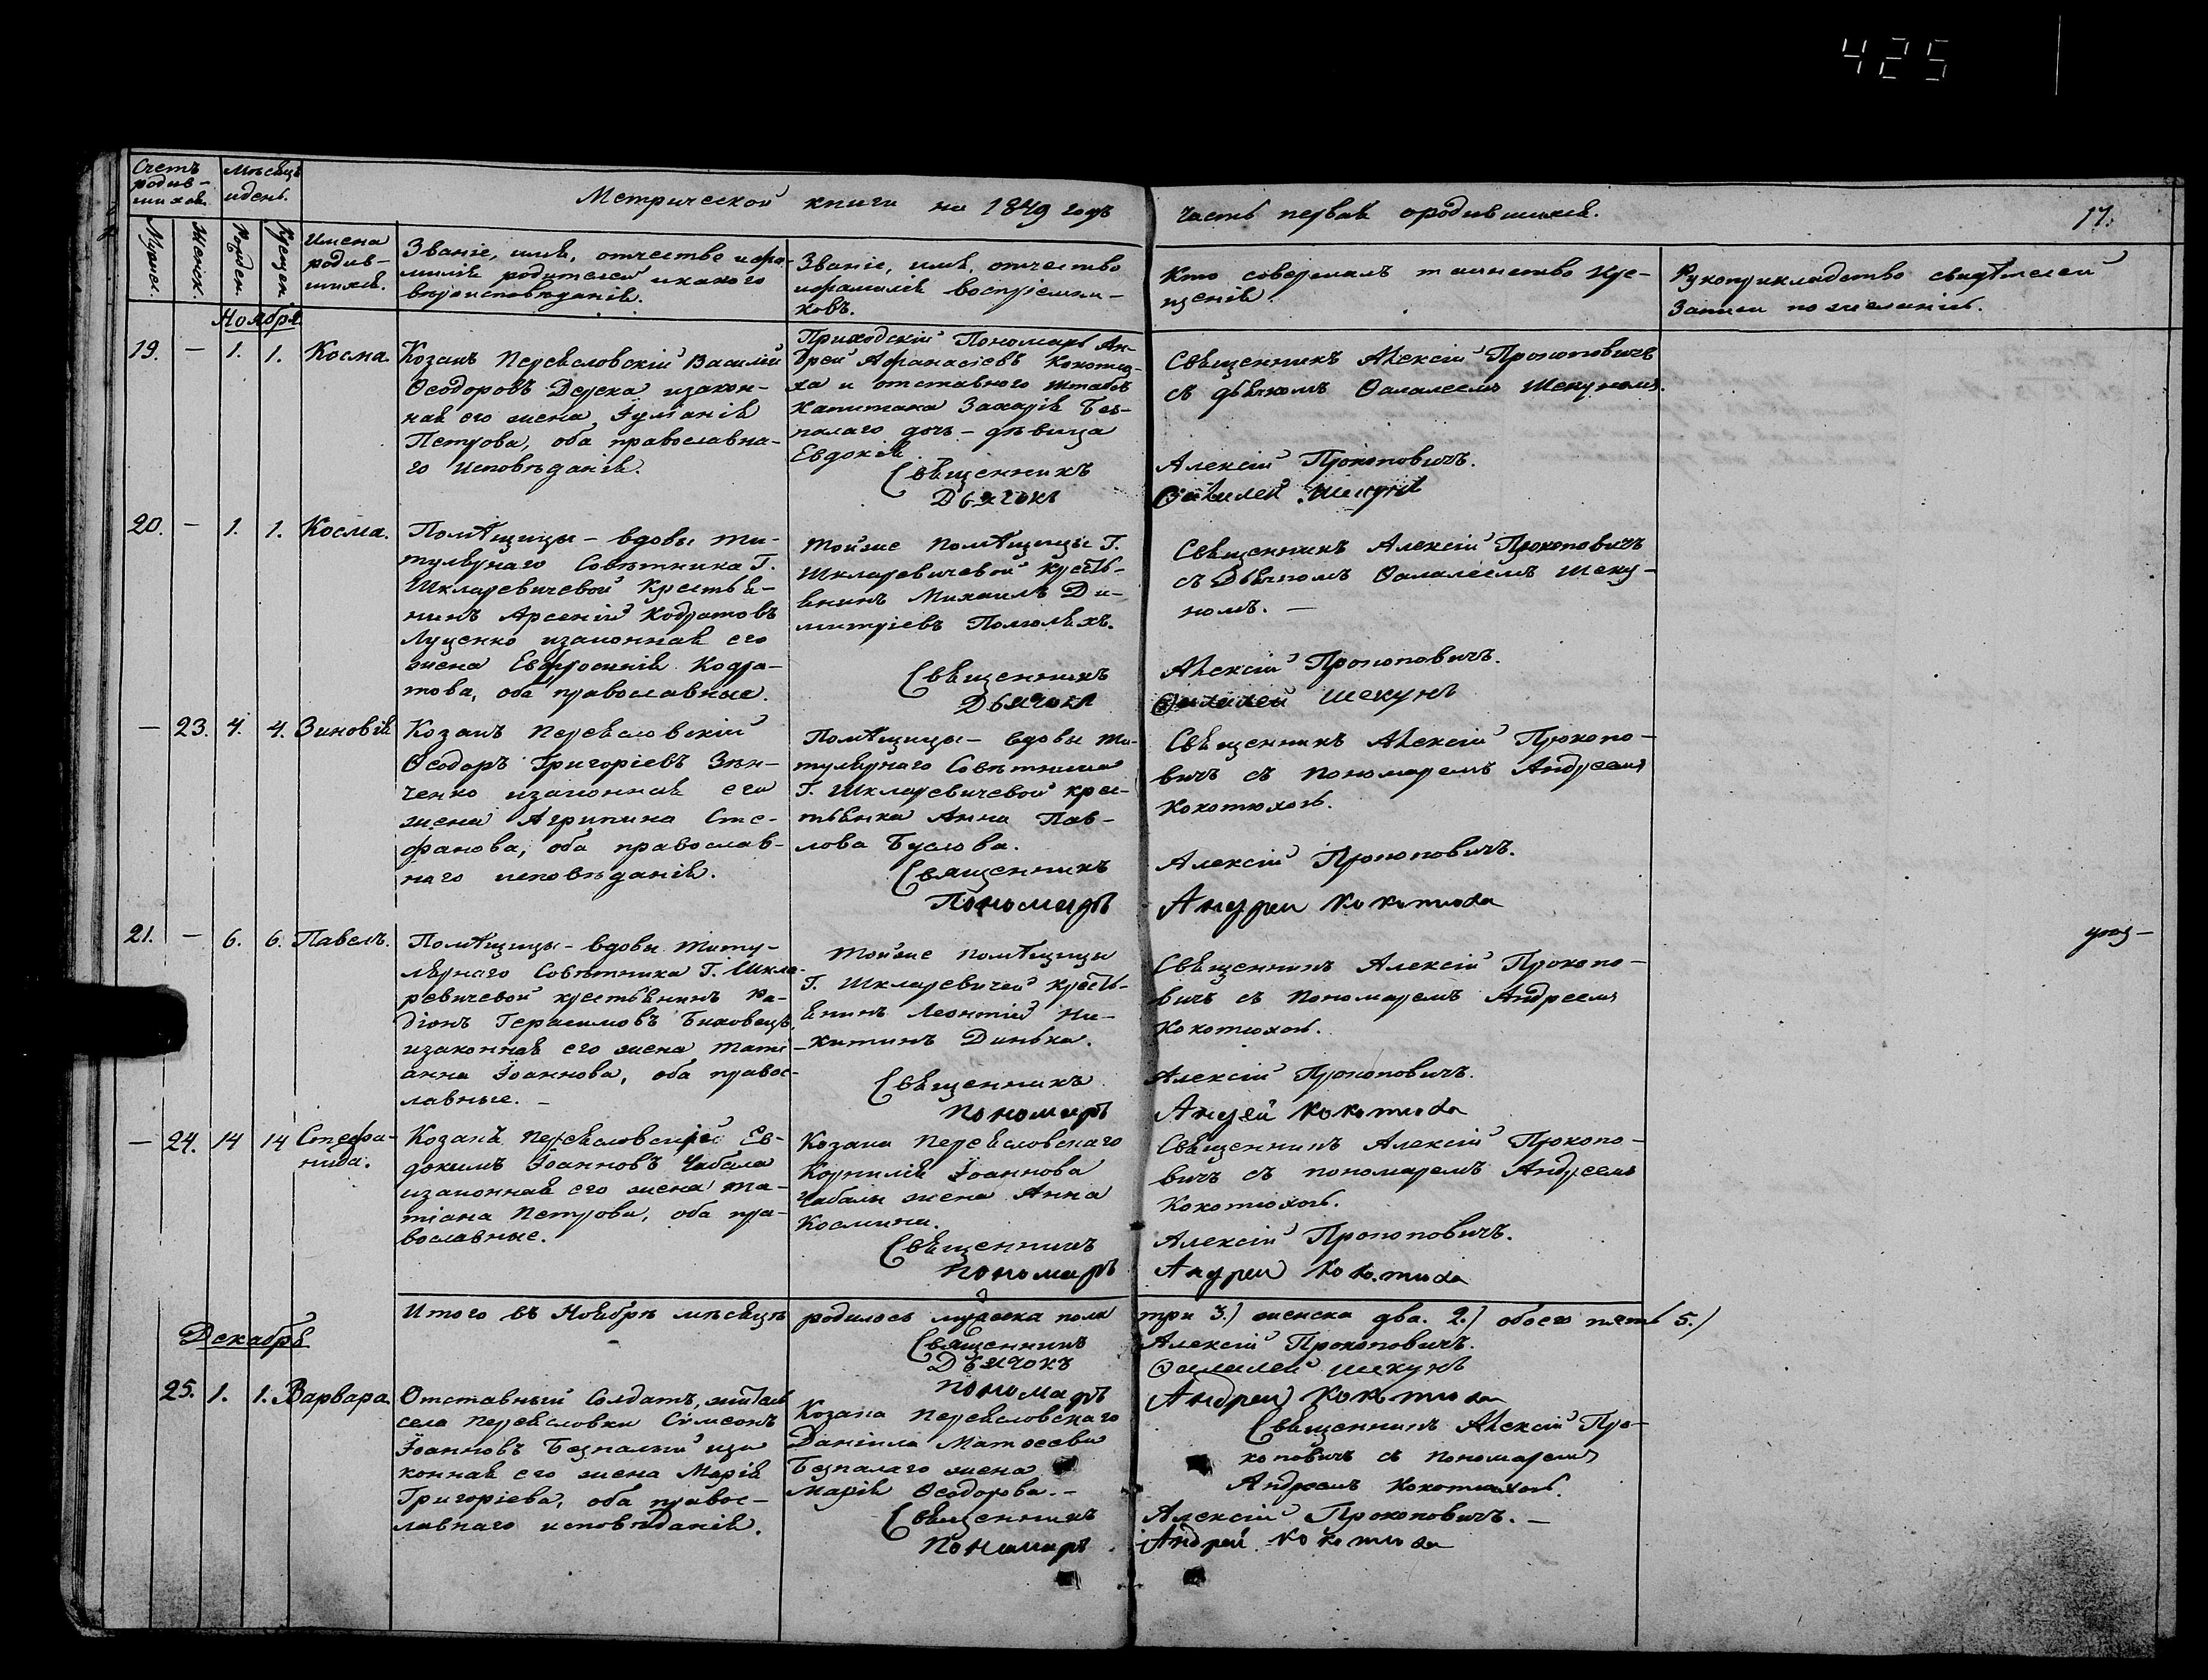 425
Счетъ
родив-
шихся.
Мѣсяцъ
и день.
Метрической книги на 1849 годъ часть первая о родившихся.
17.
Мужес.
Женск.
Рожден.
Крещен.
Имена
родив-
шихся.
Званіе, имя, отчество и фа-
милія родителей и какого
вѣроисповѣданія.
Званіе, имя, отчество
и фамилія воспріемни-
ковъ.
Кто совершалъ таинство кре-
щенія.
Рукоприкладство свидѣтелей
записи по желанію.
Ноября
19. — 1. 1. Косма.
Козакъ Переясловскій Василій
Ѳеодоровъ Дерека и закон-
ная его жена Іуліанія
Петрова, оба православна-
го исповѣданія.
Приходскій Пономарь Ан-
дрей Афанасіевъ Кокотю-
ха и отставного штабсъ
капитана Захарія Без-
палаго дочь - дѣвица
Евдокія.
Священникъ
Дьячокъ
Священникъ Алексій Прокоповичъ
съ дьячкомъ Ѳалалеемъ Шекуномъ.
Алексій Прокоповичъ.
Ѳалалей Шекунъ
20. — 1. 1. Косма.
Помѣщицы - вдовы ти-
тулярнаго Совѣтника Г.
Шкляревичевой крестья-
нинъ Арсеній Кодратовъ
Луценко и законная его
жена Евфросинія Кодра-
това, оба православные.
Тойже помѣщицы Г.
Шкляревичевой кресть-
янинъ Михаилъ Ди-
митріевъ Полюляхъ.
Священникъ
Дьячокъ
Священникъ Алексій Прокоповичъ
съ Дьячкомъ Ѳалалеемъ Шеку-
номъ. —
Алексій Прокоповичъ.
Ѳалалей Шекунъ
— 23. 4. 4. Зиновія
Козакъ Переясловскій
Ѳеодоръ Григоріевъ Зѣн-
ченко и законная его
жена Агрипина Сте-
фанова, оба православ-
наго исповѣданія.
Помѣщицы - вдовы ти-
тулярнаго Совѣтника
Г. Шкляревичевой крес-
тьянка Анна Пав-
лова Буслова.
Священникъ
Пономарь
Священникъ Алексій Прокопо-
вичъ съ пономаремъ Андреемъ
Кокотюхою.
Алексій Прокоповичъ.
Андрей Кокотюха
21. — 6. 6. Павелъ.
Помѣщицы - вдовы титу-
лярнаго Совѣтника Г. Шкля-
ревичевой крестьянинъ Ра-
діонъ Герасимовъ Биковецъ
и законная его жена Таті-
анна Іоаннова, оба правос-
лавные. —
Тойже помѣщицы
Г. Шкляревичей кресть-
янинъ Леонтій Ни-
китинъ Динька.
Священникъ
Пономарь
Священникъ Алексій Прокопо-
вичъ съ пономаремъ Андреемъ
Кокотюхою.
Алексій Прокоповичъ.
Андрей Кокотюха
— 24. 14 14 Стефа-
нида.
Козакъ Переясловскій Ев-
докимъ Іоанновъ Чабала
и законная его жена Та-
тіана Петрова, оба пра-
вославные.
Козака Переясловскаго
Корнилія Іоаннова
Чабалы жена Анна
Космина.
Священникъ
Пономарь
Священникъ Алексій Прокопо-
вичъ съ пономаремъ Андреемъ
Кокотюхою.
Алексій Прокоповичъ.
Андрей Кокотюха
Итого въ Ноябрѣ мѣсяцѣ родилось мужеска пола три 3.) женска два. 2.) обоего пять 5.)
Священникъ Алексій Прокоповичъ.
Дьячокъ Ѳалалей Шекунъ
Пономарь Андрей Кокотюха
Декабря
25. 1. 1. Варвара
Отставный Солдатъ, житель
села Переясловки Симеонъ
Іоанновъ Безпалый и за
конная его жена Марія
Григоріева, оба правос-
лавнаго исповѣданія.
Козака Переясловскаго
Даніила Матѳеева
Безпалаго жена
Марія Ѳеодорова. —
Священникъ
Пономарь
Священникъ Алексій Про-
коповичъ съ пономаремъ
Андреемъ Кокотюхою.
Алексій Прокоповичъ. —
Андрей Кокотюха